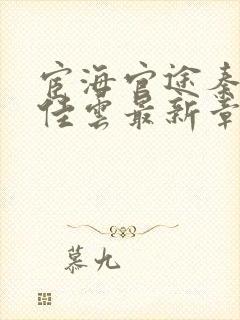 宦海官途秦
佳云最新章
慕九